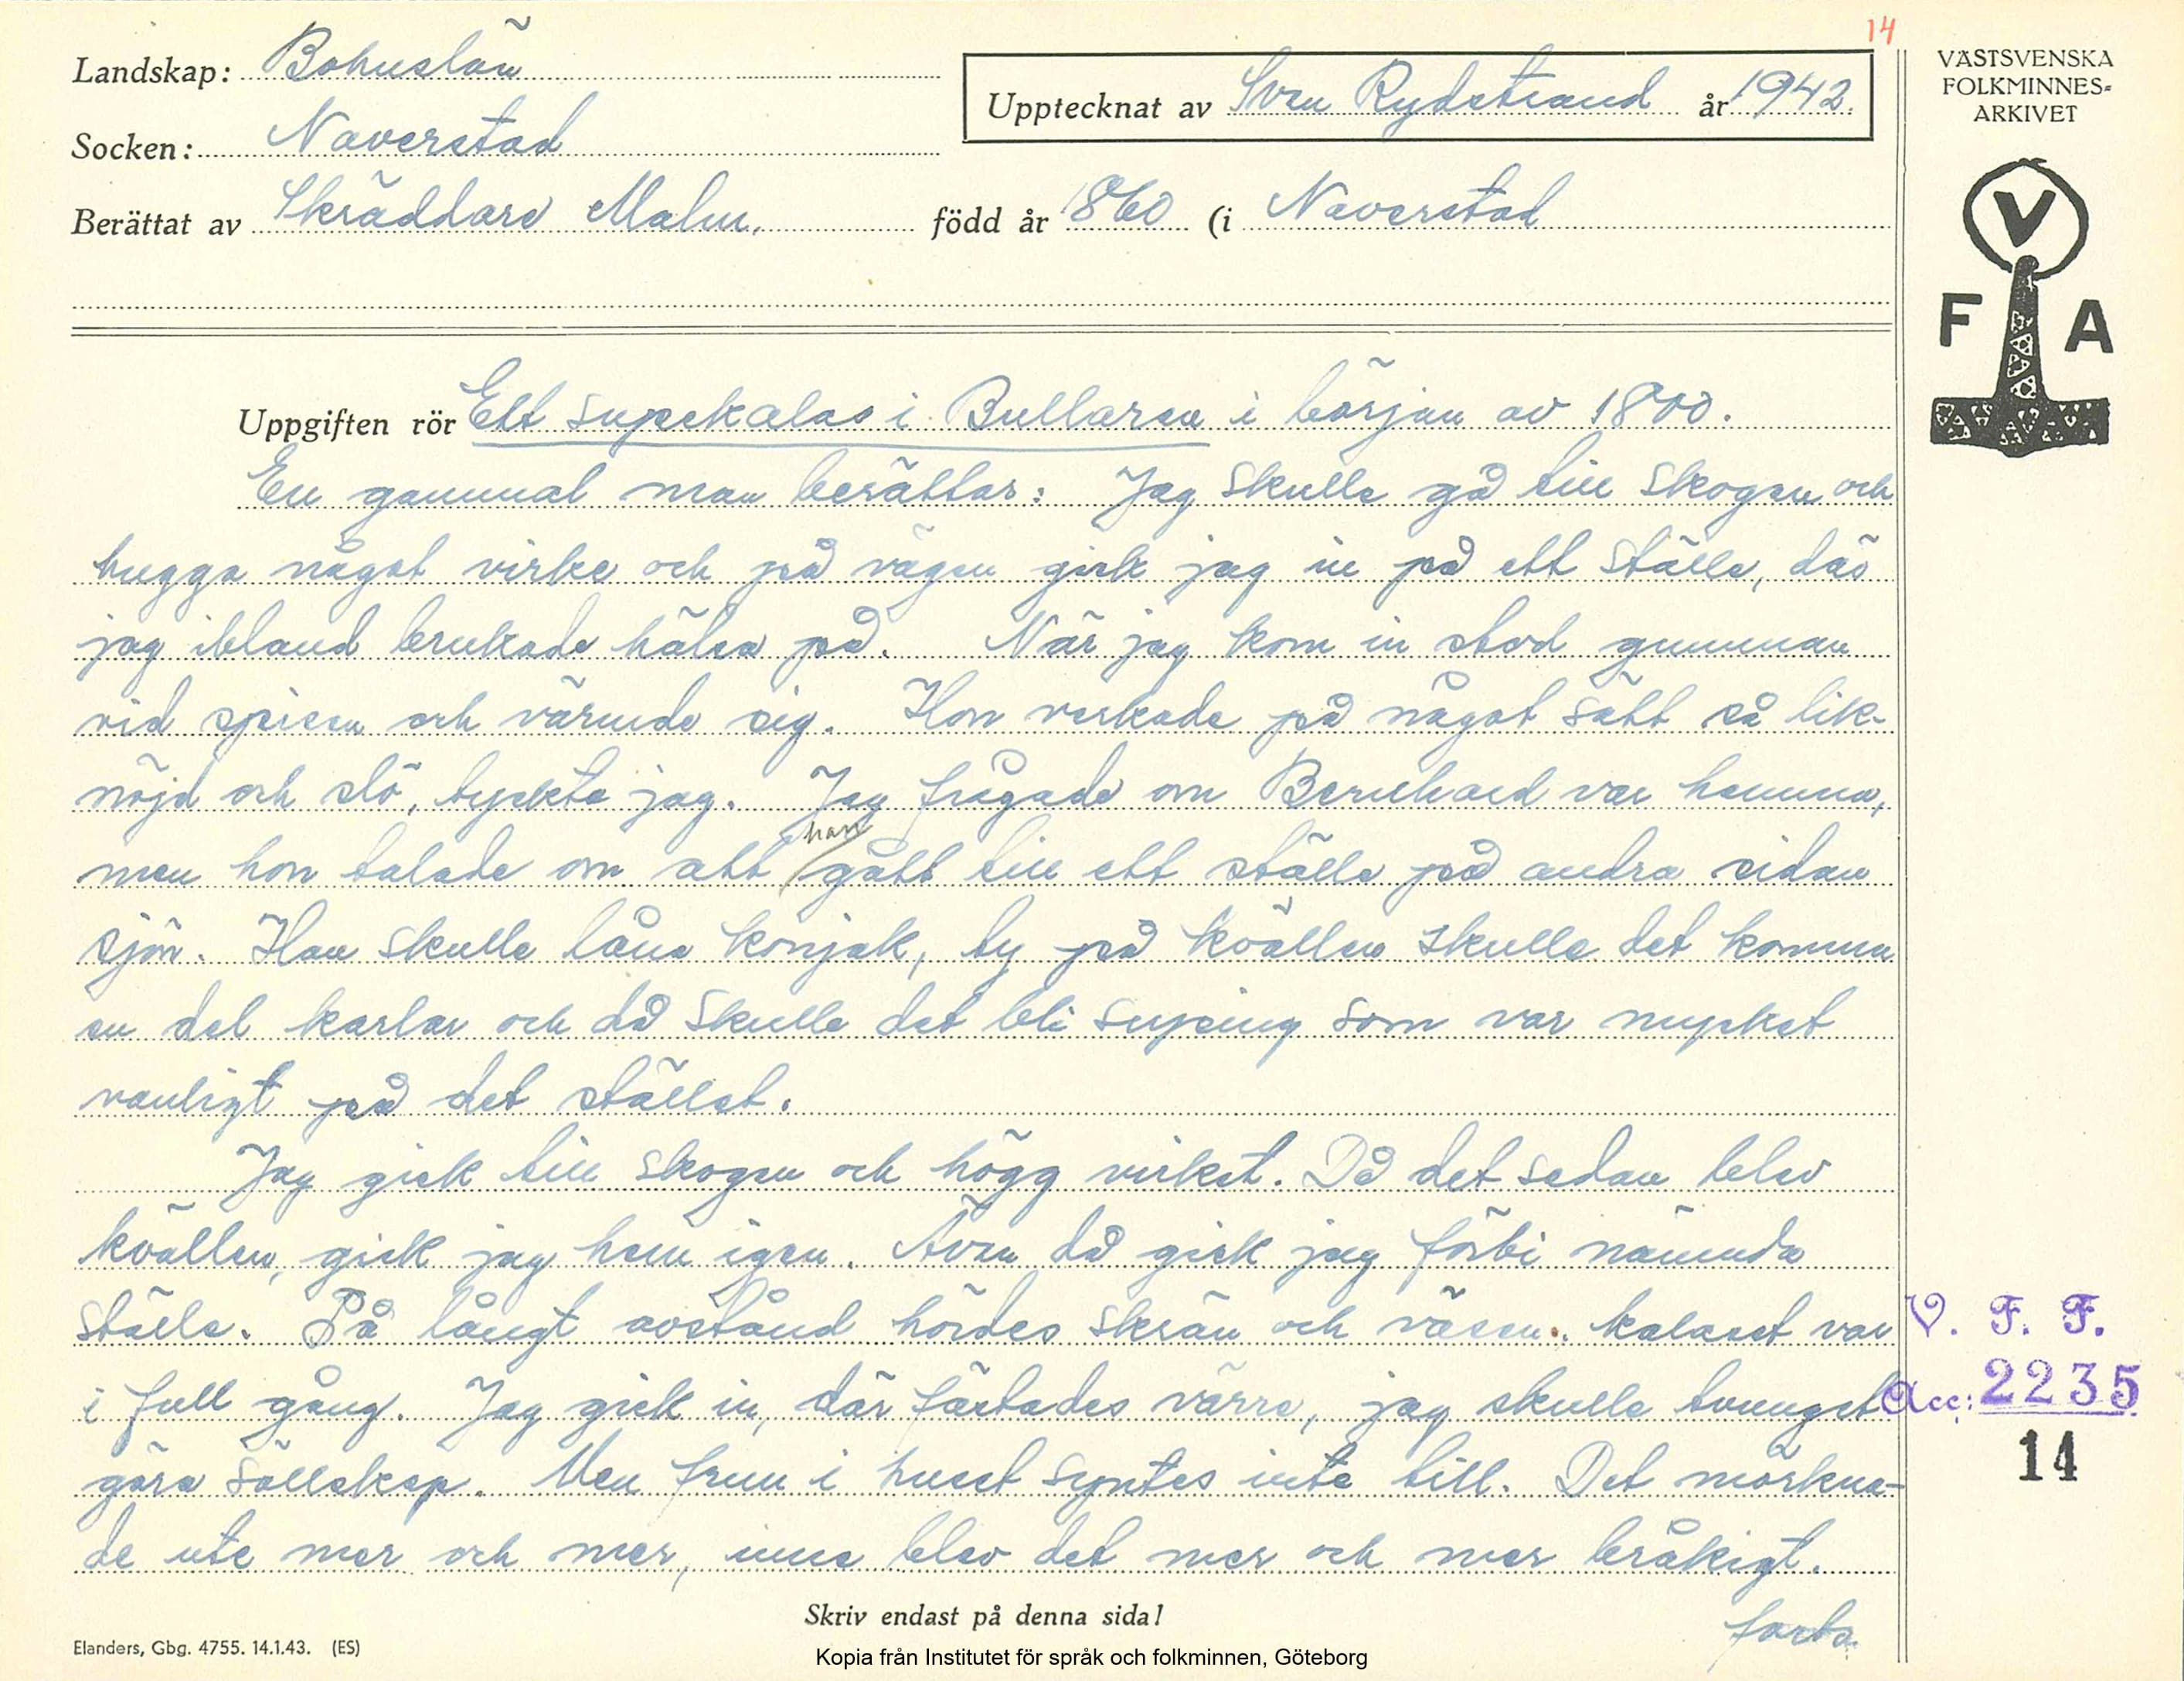 14
Landskap: Bohuslän
Upptecknat av Sven Rydstrand år 1942.
Socken: Naverstad
Berättat av Skräddare Malm. född år 1860 (i Naverstad
VÄSTSVENSKA
FOLKMINNES=
ARKIVET
V
F A
Uppgiften rör Ett supekalas i Bullaren i början av 1800.
En gammal man berättar: Jag skulle gå till skogen och
hugga något virke och på vägen gick jag in på ett ställe, där
jag ibland brukade hälsa på. När jag kom in stod gumman
vid spisen och värmde sig. Hon verkade på något sätt så lik-
nöjd och slö, tyckte jag. Jag frågade om Bernhard var hemma,
men hon talade om att han gått till ett ställe på andra sidan
sjön. Han skulle låna konjak, ty på kvällen skulle det komma
en del karlar och då skulle det bli suping som var mycket
vanligt på det stället.
Jag gick till skogen och högg virket. Då det sedan blev
kvällen, gick jag hem igen. Även då gick jag förbi nämnda
ställe. På långt avstånd hördes skrän och väsen. kalaset var
i full gång. Jag gick in, där fästades värre, jag skulle tvunget
göra sällskap. Men frun i huset syntes inte till. Det mörkna-
de ute mer och mer, inne blev det mer och mer bråkigt.
forts.
V. F. F.
Acc: 2235
14
Skriv endast på denna sida!
Elanders, Gbg. 4755. 14.1.43. (ES)
Kopia från Institutet för språk och folkminnen, Göteborg